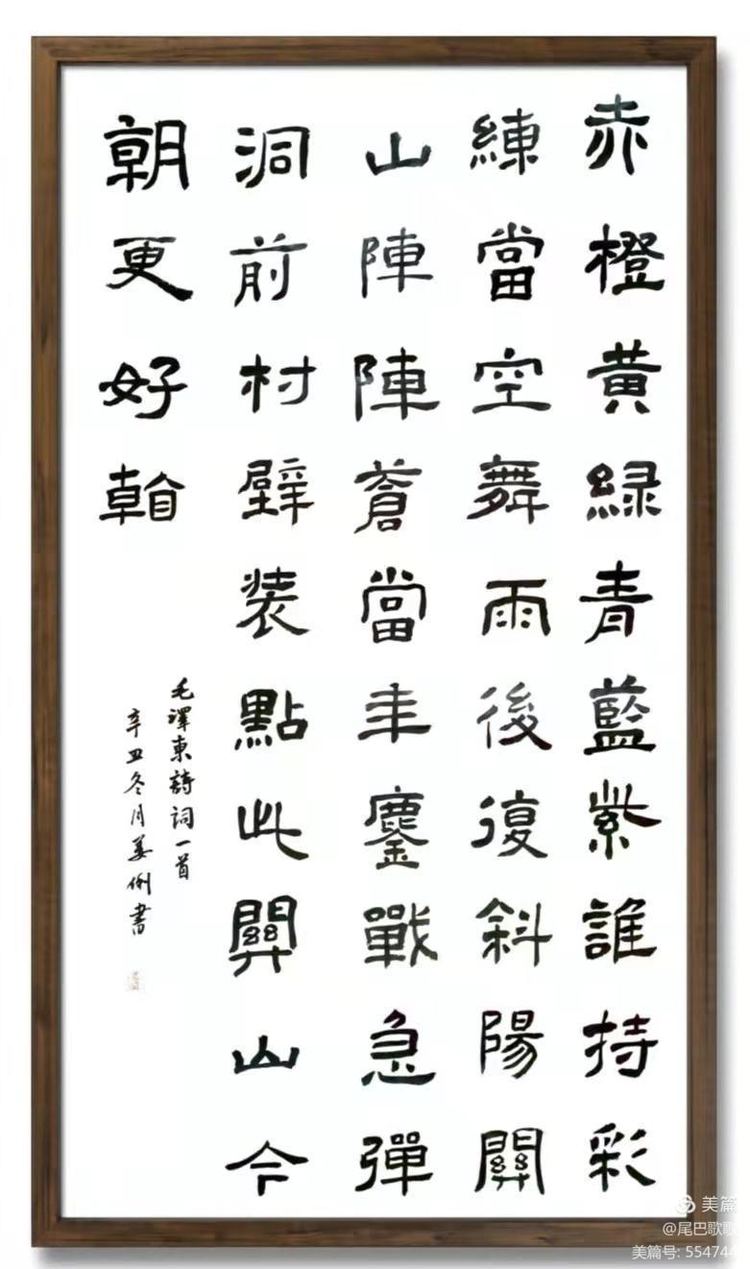 赤橙黄緑青藍紫誰持彩
練當空舞雨後復斜陽關
山陣陣蒼當年鏖戰急彈
洞前村壁装點此關山今
朝更好看
毛澤東詩詞一首
辛丑冬月姜俐書
美篇
@尾巴歌歌
美篇号: 554744